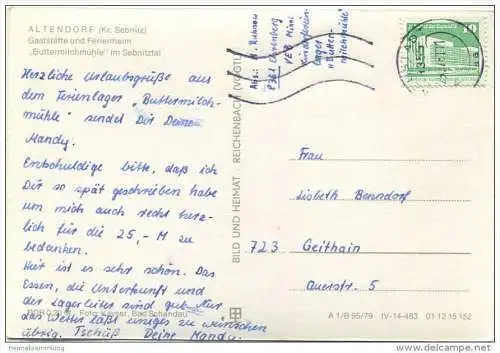 ALTENDORF (Kr. Sebnitz)
Gaststätte und Ferienheim
„Buttermilchmühle" im Sebnitztal
Herzliche Urlaubsgrüße aus
dem Ferienlager "Buttermilch-
mühle" sendet Dir Deine
Mandy.
Entschuldige bitte, daß ich
Dir so spät geschrieben habe
um mich auch recht herz-
lich für die 25,- M zu
bedanken.
Hier ist es sehr schön. Das
Essen, die Unterkunft und
der Lagerleiter sind gut. Nur
das Wetter läßt einiges zu wünschen
übrig. Tschüß Deine Mandy.
Foto: Kayser, Bad Schandau
BILD UND HEIMAT REICHENBACH (VOGTL)
Abs.: M.
Ehrenberg
VEB
Kinderferien-
lager
"Butter-
milchmühle"
10
Frau
Lisbeth Benndorf
723 Geithain
Querstr. 5
A 1/B 95/79 IV-14-483 01 12 15 152